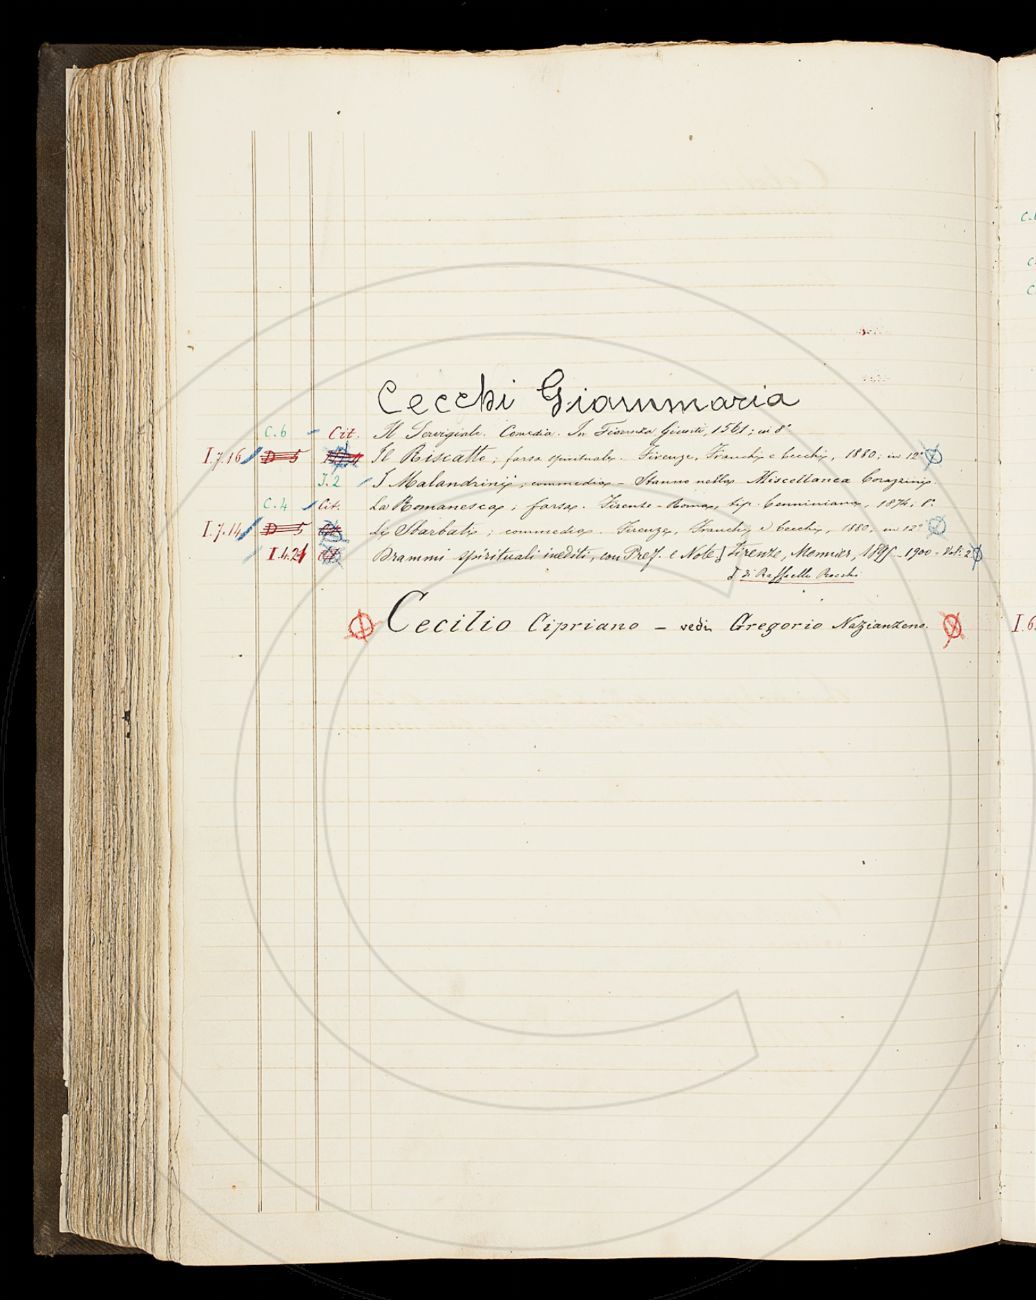 Cecchi Giammaria
C.6 Cit. Il Servigiale. Comedia. In Fiorenza Giunti, 1561; in 8°
I.7.16 D 5 Il Riscatto; farsa spirituale. Firenze, Franchi e Cecchi, 1880; in 12°
J.2 I Malandrini; commedia - Stanno nella Miscellanea Corazzini.
C.4 Cit. La Romanesca; farsa. Firenze-Roma, tip. Cenniniana, 1874; 8°
I.7.14 D 5 Gli Sbarbati; commedia. Firenze, Franchi e Cecchi, 1880; in 12°
I.4.21 Cit. Drammi spirituali inediti, con Pref. e Note] Firenze, Monnier, 1895-1900 - Vol: 2
] di Raffaello Rocchi
Cecilio Cipriano - vedi Gregorio Nazianzeno.
C.
I.6